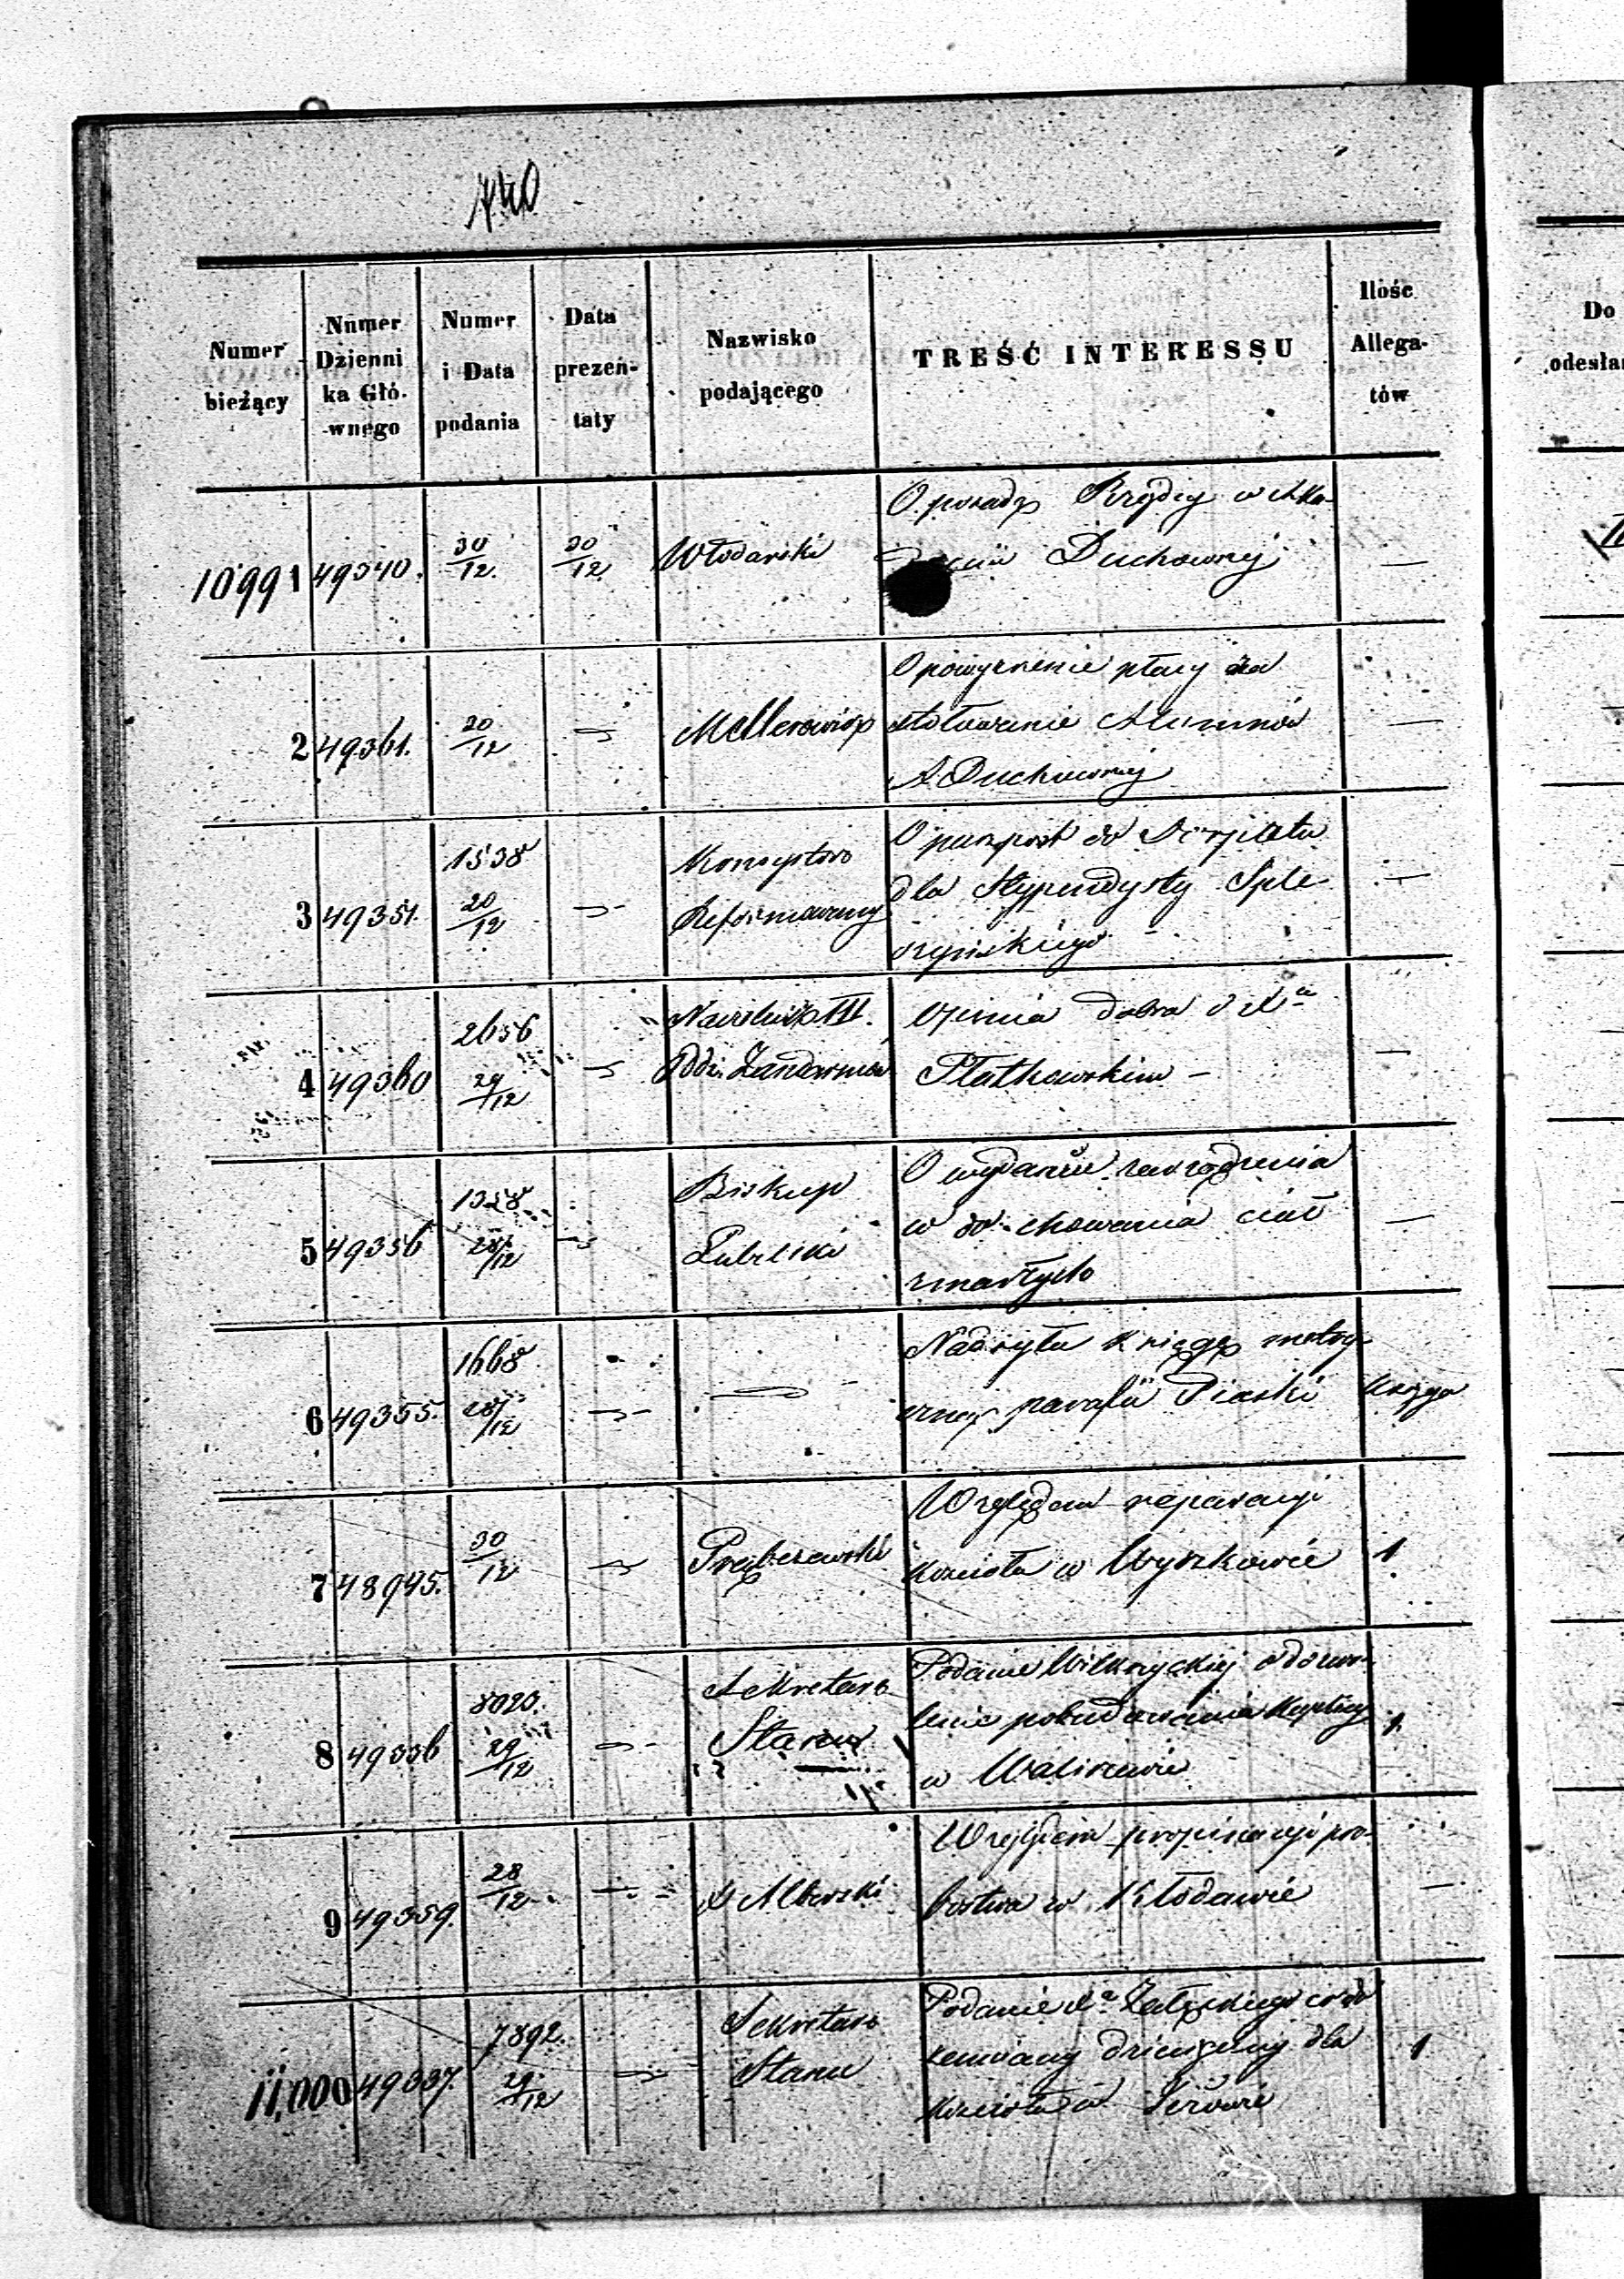 740
Numer bieżący
Numer Dzienni ka Głó- wnego
Numer i Data podania
Data prezen- taty
Nazwisko podającego
TREŚĆ INTERESSU
Ilość Allega- tów
Do
odesła
10991 49340. 30/12. 30/12 Włodarski
O posadę Rządcy w Aka-
Duchownej —
2 49361. 20/12 Mellerowicz
O powyższenie płacy za
stołowanie Alumnów —
A. Duchownej
3 49351. 1538 20/12 Konsystorz Reformowany
O paszport do Dorpatu
dla Stypendysty —
4 49360 2656 29/12 Naczelnik III. Oddz. Żandarmów
Opinia dobra o Xu
Płatkowskim — —
5 49356 1328 28/12 Biskup Lubelski
O wydanie rozrządzenia
w do chowania ciał —
zmarłych
6 49355. 1668 28/12 —
Nadsyła księgę metry-
czną parafii Piaski Księga
7 48945. 30/12
Względem reparacyi
kościoła w Wyszkowie 1
8 49336 8020. 29/12 Sekretarz Stanu
Podanie Wilkszyckiej o dozwo-
lenie pobudowania Kaplicy 1.
w
9 49359. 28/12 X Alberski
Względem propinacyi pro-
bostwa w Kłodawie —
11,000 49337. 7892. 29/12 Sekretarz Stanu
Podanie Xa Załęskiego
dla 1
kościoła w